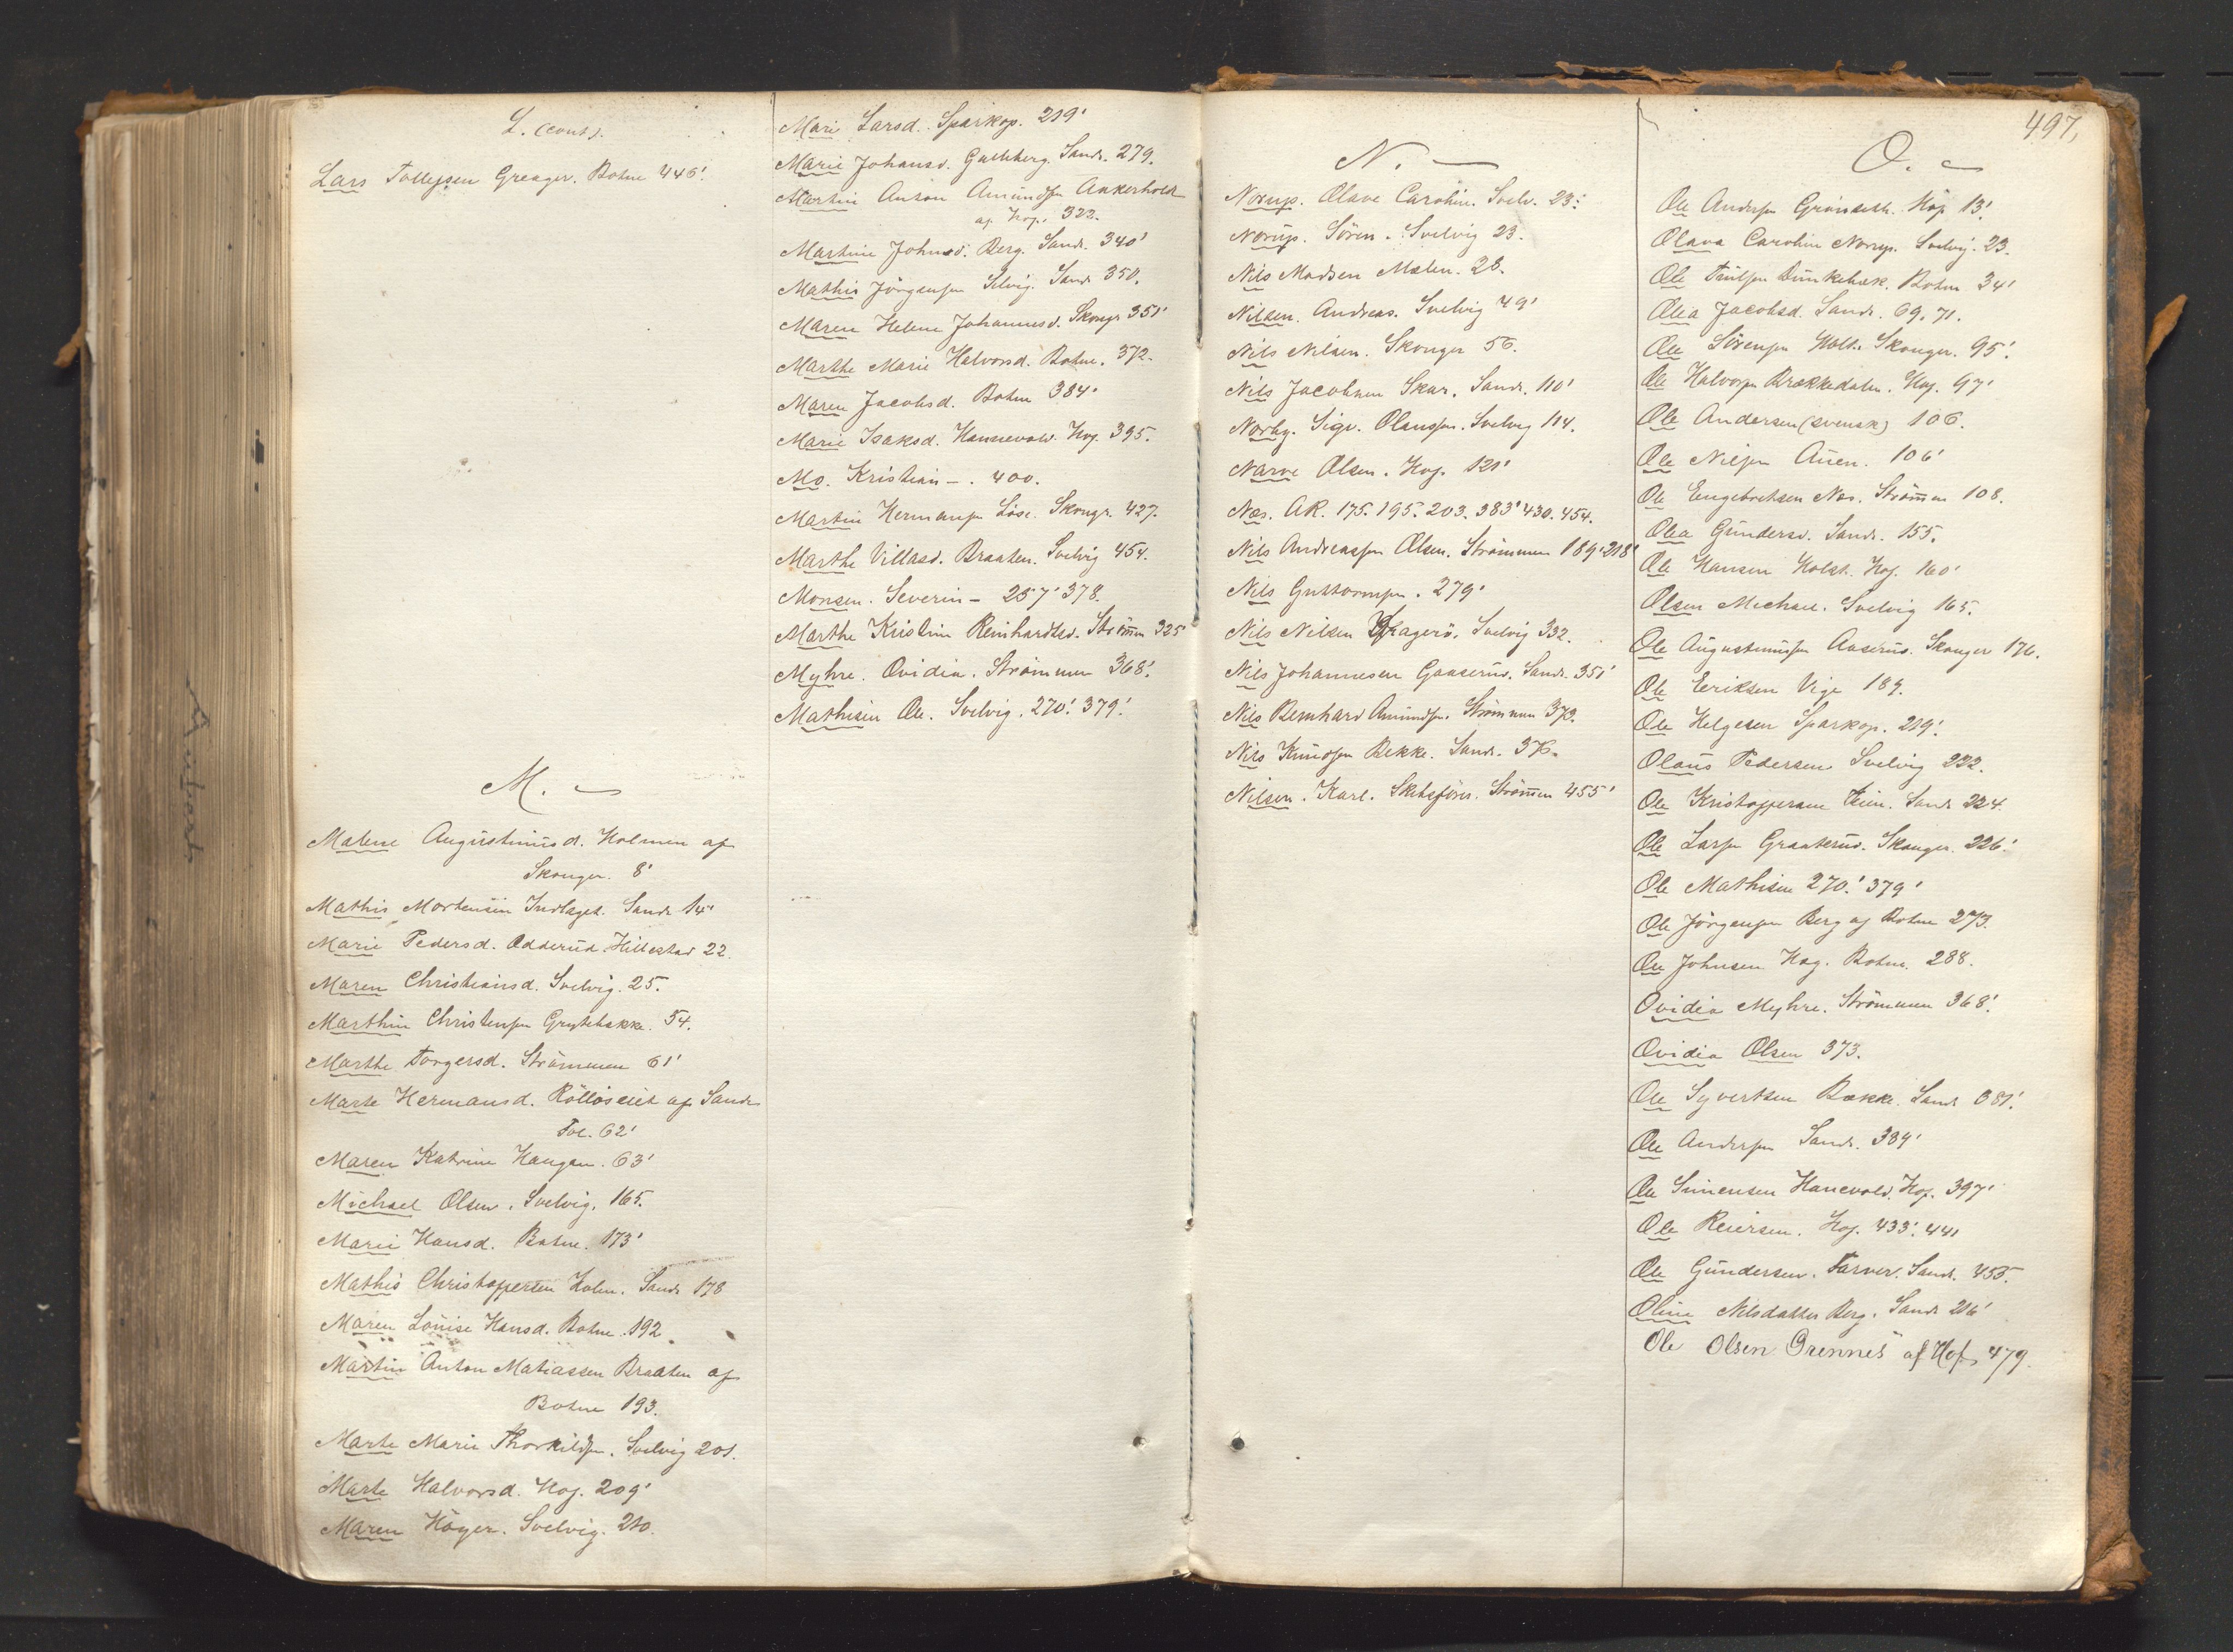 L. (cont).
Lars Tollefsen Greager. Botne 446'.
M.
Malene Augustinusd. Holmen af
Skouger. 8'
Mathis Mortensen Indlaget. Sande 14'
Marie Pedersd. Odderud. Hillestad 22.
Maren Christiansd. Svelvig. 25.
Marthin Christensen Grytebakke. 54.
Marthe Torgersd. Strömmen 61'
Marte Hermansd. af Sande
Fol. 62'
Maren Katrine Haugan. 63'
Michael Olsen. Svelvig. 165.
Marie Hansd. Botne. 173'
Mathis Christoffersen Holm. Sande 178
Maren Louise Hansd. Botne. 192
Martin Anton Matiassen Braaten af
Botne 193.
Marte Marie Thorkildsen. Svelvig 201.
Marte Halvorsd. Hof. 209'
Maren Höyer. Svelvig. 210.
Mari Larsd. Sparkop. 219'
Marie Johansd. Gulliberg. Sande. 279.
Martin Anton Amundsen Ankerholt
af Hof. 322.
Martine Johnsd. Berg. Sande. 340'
Mathis Jörgensen Selvig. Sande 350.
Maren Helene Johannesd. Skouger 351'
Marthe Marie Halvorsd. Botne. 372.
Maren Jacobsd. Botne 384'
Marie Isaksd. Hannevold. Hof. 395.
Mo. Kristian -. 400.
Martin Hermansen Löse. Skouger. 427.
Marthe Villasd. Braaten. Svelvig 454.
Monsen. Severin - 257' 378.
Marthe Kristine Reinhardtsd. Strömmen 325'
Myhre. Ovidia. Strömmen 368'.
Mathisen Ole. Svelvig. 270'. 379'.
N.
Norup. Olave Caroline. Svelv. 23.
Norup. Sören. Svelvig 23.
Nils Madsen Mælen. 28.
Nilsen. Andreas. Svelvig 49'
Nils Nilsen. Skouger 56.
Nils Jacobsen Skar. Sande. 110'
Norby. Sigv. Olaussen. Svelvig 114.
Narve Olsen. Hof. 121'
Næs. AR. 175. 195. 203. 383' 430. 454.
Nils Andreassen Olsen. Strömmen 189' 218'
Nils Guttormsen. 279'
Nils Nilsen Kragerö. Svelvig 332.
Nils Johannesen Gaaserud. Sande. 351'
Nils Bernhard Amundsen. Strömmen 373.
Nils Knudsen Bekke. Sande. 376.
Nilsen. Karl. Skibsförer. Strömmen 455'
497,
O.
Ole Andersen Grönseth. Hof 13'.
Olava Caroline Norup. Svelvig. 23.
Ole Paulsen Dunkebæk. Botne 34'
Olea Jacobsd. Sande. 69. 71.
Ole Sörensen Holt. Skouger. 95'.
Ole Halvorsen Brækkedalen. Hof. 97'
Ole Andersen (svensk) 106.
Ole Nilsen Auen. 106'
Ole Engebretsen Næs. Strömmen 108.
Olea Gundersd. Sande. 155.
Ole Hansen Holst. Hof. 160'
Olsen Michael. Svelvig 165.
Ole Augustinusen Aaserud. Skouger 176.
Ole Eriksen Vige 189.
Ole Helgesen Sparkop. 219'.
Olaus Pedersen Svelvig 222.
Ole Kristoffersen. Sande 224.
Ole Larsen Graaterud. Skouger. 226'.
Ole Mathisen 270.' 379'
Ole Jörgensen Berg af Botne 273.
Ole Johnsen Hag. Botne. 288.
Ovidia Myhre. Strömmen 368'.
Ovidia Olsen 373.
Ole Syvertsen Bække. Sande 381'.
Ole Andersen Sande. 389'
Ole Simensen Hanevold. Hof. 397'
Ole Reiersen. Hof. 433'. 441
Ole Gundersen. Farver. Sande. 455.
Oline Nilsdatter Berg. Sande 216'
Ole Olsen Grennes af Hof 479.